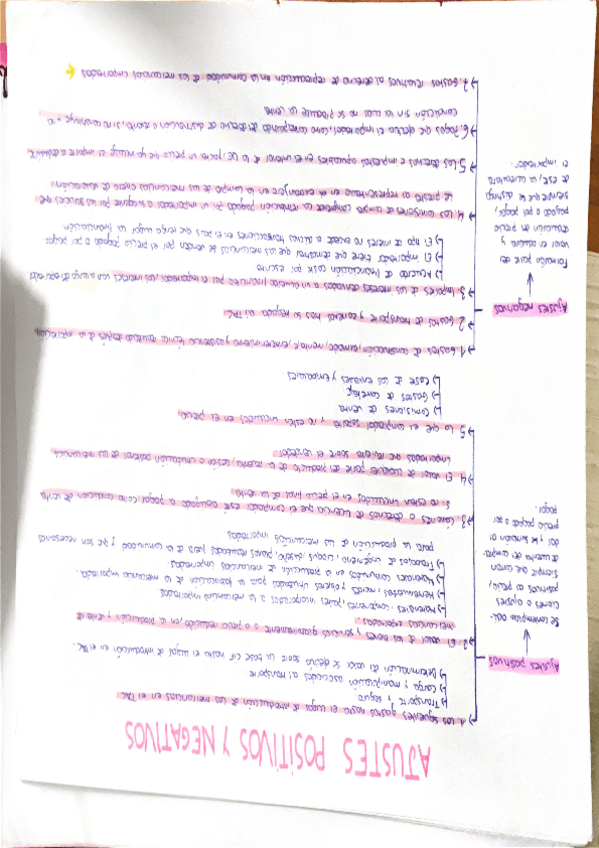 AJUSTES POSITIVOS Y NEGATIVOS
Ajustes positivos
Se contemplan adi-
ciones o ajustes
positivos al precio,
siempre que corran
de cuenta del compra-
dor y se sumarán al
precio pagado o por
pagar.
1. Los siguientes gastos hasta el lugar de introducción de las mercancías en el TAC
Transporte y seguro
Carga y manipulación asociados al transporte
Determinación del valor se define sobre la base CIF hasta el lugar de introducción en el TAC.
2. El valor de los bienes y servicios gratuitamente o a precio reducido en la producción y venta de
mercancías exportadas.
Materiales, componentes, partes incorporados a la mercancía importada
Herramientas, moldes y objetos utilizados para la fabricación de la mercancía importada.
Materiales consumidos en la producción de mercancías importadas.
Trabajos de ingeniería, croquis, diseño, planes realizados fuera de la comunidad y que son necesarios
para la producción de las mercancías importadas
3. Cánones o derechos de licencia que el comprador esté obligado a pagar como condición de venta
si no están incluidos en el precio final de la venta
4. El valor de cualquier parte del producto de la reventa, cesión o utilización posterior de las mercancías
importadas que revierta sobre el vendedor
5. Lo que el comprador soporta y no estén incluidos en el precio
Comisiones de venta
Gastos de corretaje
Coste de los envases y embalajes
Ajustes negativos
Formación del
valor en aduana y
situación en precio
pagado o por pagar,
siempre que se distinga
de este, la cuantía
el importador.
1. Gastos de construcción, armado, montaje, entretenimiento y asistencia técnica realizada después de la importación
2. Gastos de transporte y conexos tras su llegada al TAC
3. Importes de los intereses derivados a un acuerdo
Acuerdo de financiación conste por escrito
El importador tiene que demostrar que las mercancías se venden por el precio pagado o por pagar
El tipo de interés no excede a dichas transacciones en el país que tenga lugar la financiación
4. Las comisiones de compra
le presta al representarlo en el extranjero en la compra de las mercancías objeto de valoración
5. Los derechos e impuestos
6. Pagos que efectúa el importador, como contrapartida del derecho de distribución o reventa, si no constituye una
condición sin la cual no se produce la venta
7. Gastos relativos al derecho de reproducción en la comunidad de las mercancías importadas